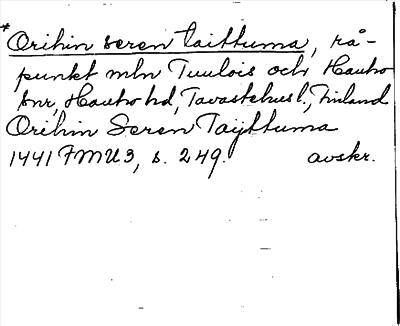 *Orihin seren taittuma, rå-
punkt mln Tuulois och Hauho
snr, Hauho hd, Tavastehus l., Finland
Orihin Seren Taÿttuma
1441 FMU 3, s. 249. avskr.